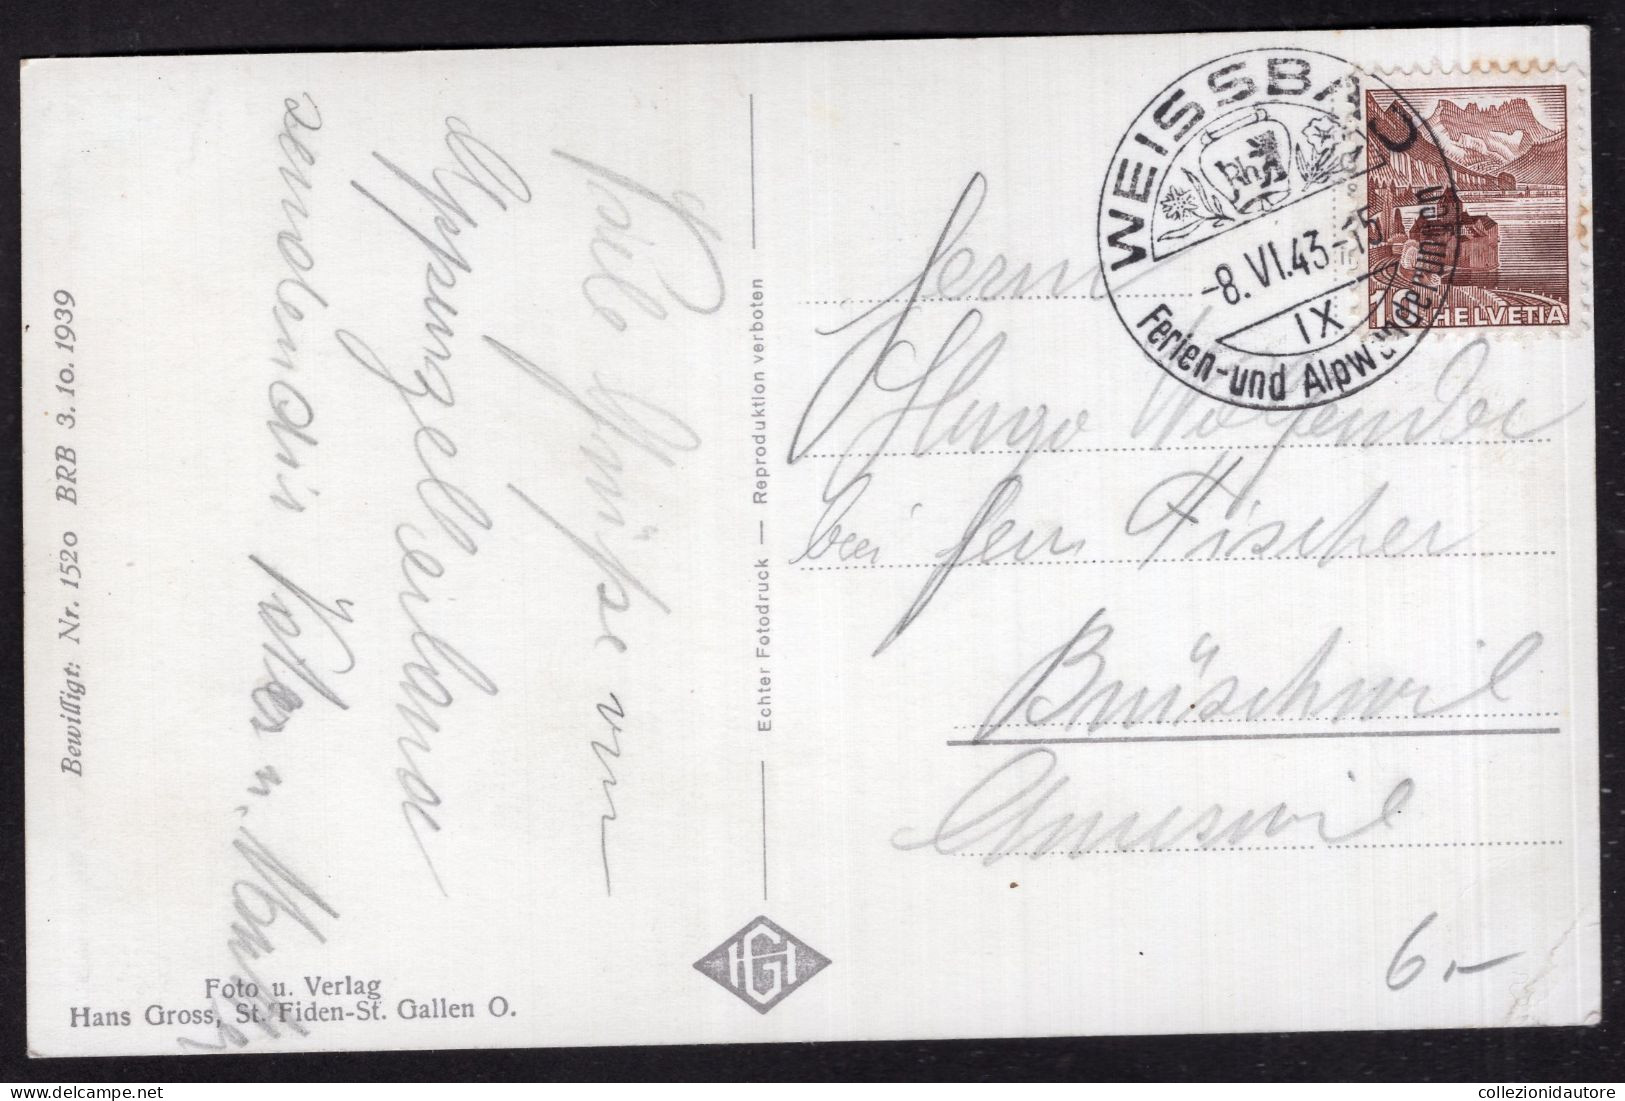 Bewilligt: Nr. 1520 BRB 3. 10. 1939
Viele Grüsse vom
Appenzellerland
senden dir Vater u.
Foto u. Verlag
Hans Gross, St. Fiden-St. Gallen O.
Echter Fotodruck — Reproduktion verboten
HG
WEISSBAD
Rh
-8.VI.43-15
IX
Ferien- und Alpwanderungen
10 HELVETIA
Herrn
Hugo
bei Fischer
Amriswil
6.–
collezionidautore